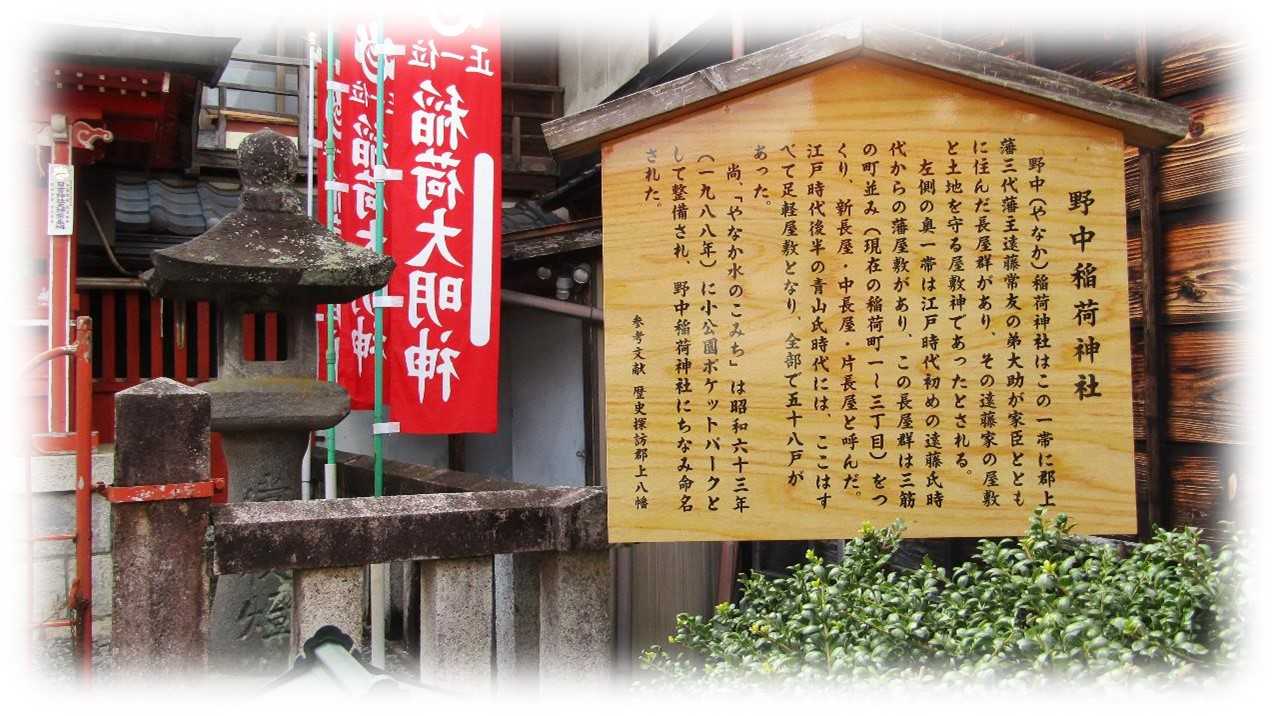 野中稲荷神社
野中(やなか)稲荷神社はこの一帯に郡上
藩三代藩主遠藤常友の弟大助が家臣ととも
に住んだ長屋群があり、その遠藤家の屋敷
と土地を守る屋敷神であったとされる。
左側の奥一帯は江戸時代初めの遠藤氏時
代からの藩屋敷があり、この長屋群は三筋
の町並み(現在の稲荷町一〜三丁目)をつ
くり、新長屋・中長屋・片長屋と呼んだ。
江戸時代後半の青山氏時代には、ここはす
べて足軽屋敷となり、全部で五十八戸が
あった。
尚、「やなか水のこみち」は昭和六十三年
(一九八八年)に小公園ポケットパークと
して整備され、野中稲荷神社にちなみ命名
された。
参考文献 歴史探訪郡上八幡
正一位
稲荷大明神
稲荷大明神